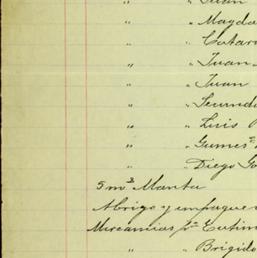 " " Juan
" " Magda
" " Catar
" " Juan
" " Juan
" " Secund
" " Luis
" " Gumes
" " Diego
5 m³ Manta
Abrigo y empaque
Mercancias pª
" " Brigido